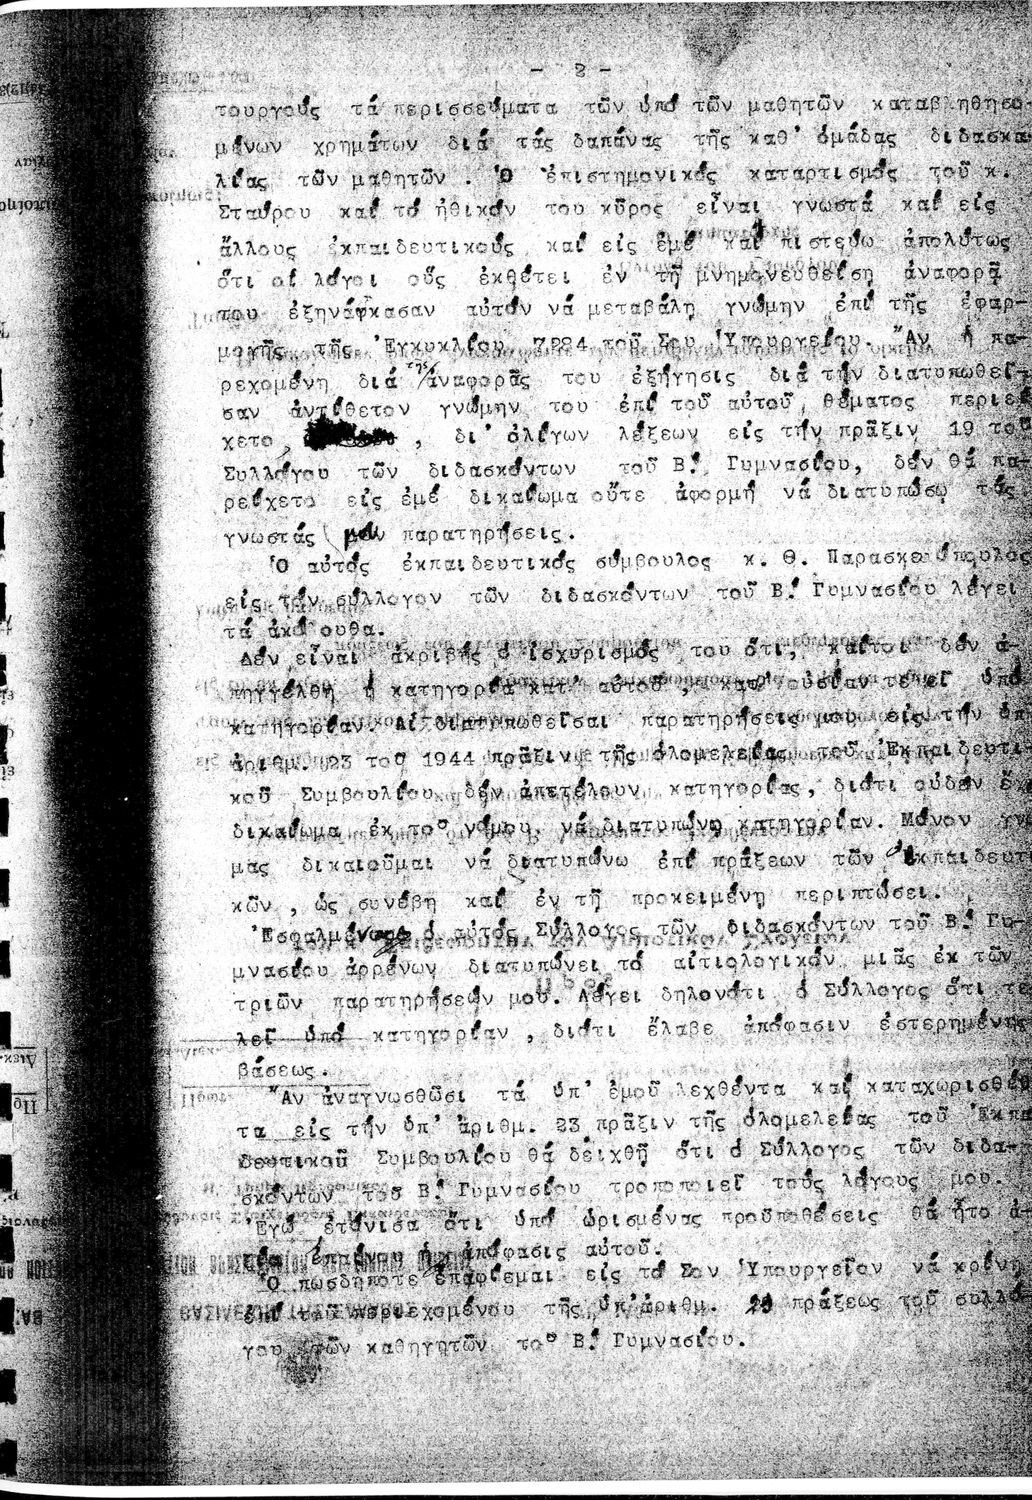 - 8 -
τουργούς τά περισσεύματα τῶν ὑπό τῶν μαθητῶν καταβληθησο
μένων χρημάτων διά τάς δαπάνας τῆς καθ' ὁμάδας διδασκα
λίας τῶν μαθητῶν . Ὁ ἐπιστημονικός καταρτισμός τοῦ κ.
Σταύρου καί τό ἠθικόν του κῦρος εἶναι γνωστά καί εἰς
ἄλλους ἐκπαιδευτικούς καί εἰς ἐμέ καί πιστεύω ἀπολύτως
ὅτι οἱ λόγοι οὕς ἐκθέτει ἐν τῇ μνημονευθείσῃ ἀναφορᾷ
του ἐξηνάγκασαν αὐτόν νά μεταβάλῃ γνώμην ἐπί τῆς ἐφαρ-
μογῆς τῆς Ἐγκυκλίου 7284 τοῦ Σου Ὑπουργείου. Ἄν ἡ πα-
ρεχομένη διά τῆς ἀναφορᾶς του ἐξήγησις διά τήν διατυπωθεῖ-
σαν ἀντίθετον γνώμην του ἐπί τοῦ αὐτοῦ θέματος περιεί
χετο , , δι' ὀλίγων λέξεων εἰς τήν πρᾶξιν 19 τοῦ
Συλλόγου τῶν διδασκόντων τοῦ Β.' Γυμνασίου, δέν θά πα-
ρείχετο εἰς ἐμέ δικαίωμα οὔτε ἀφορμή νά διατυπώσω τάς
γνωστάς μου παρατηρήσεις.
Ὁ αὐτός ἐκπαιδευτικός σύμβουλος κ. Θ. Παρασκευόπουλος
εἰς τόν σύλλογον τῶν διδασκόντων τοῦ Β.' Γυμνασίου λέγει
τά ἀκόλουθα.
Δέν εἶναι ἀκριβής ὁ ἰσχυρισμός του ὅτι, καίτοι δέν ἀ-
πηγγέλθη ἡ κατηγορία κατ' αὐτοῦ , κατ' οὐσίαν τελεῖ ὑπό
κατηγορίαν. Αἱ διατυπωθεῖσαι παρατηρήσεις μου εἰς τήν ὑπ'
ἀριθμ. 23 τοῦ 1944 πρᾶξιν τῆς ὁλομελείας τοῦ Ἐκπαιδευτι
κοῦ Συμβουλίου δέν ἀπετέλουν κατηγορίας, διότι οὐδέν ἔχ
δικαίωμα ἐκ τοῦ νόμου νά διατυπώνω κατηγορίαν. Μόνον γνώ
μας δικαιοῦμαι νά διατυπώνω ἐπί πράξεων τῶν Ἐκπαιδευτι
κῶν , ὡς συνέβη καί ἐν τῇ προκειμένῃ περιπτώσει.
Ἐσφαλμένως ὁ αὐτός Σύλλογος τῶν διδασκόντων τοῦ Β.' Γυ-
μνασίου ἀρρένων διατυπώνει τό αἰτιολογικόν μιᾶς ἐκ τῶν
τριῶν παρατηρήσεών μου. Λέγει δηλονότι ὁ Σύλλογος ὅτι τε
λεῖ ὑπό κατηγορίαν , διότι ἔλαβε ἀπόφασιν ἐστερημένην
βάσεως.
Ἄν ἀναγνωσθῶσι τά ὑπ' ἐμοῦ λεχθέντα καί καταχωρισθέν
τα εἰς τήν ὑπ' ἀριθμ. 23 πρᾶξιν τῆς ὁλομελείας τοῦ Ἐκπα
δευτικοῦ Συμβουλίου θά δειχθῇ ὅτι ὁ Σύλλογος τῶν διδα-
σκόντων τοῦ Β.' Γυμνασίου τροποποιεῖ τούς λόγους μου.
Ἐγώ ἐτόνισα ὅτι ὑπό ὡρισμένας προϋποθέσεις θά ἦτο ἀ
ἡ ἀπόφασις αὐτοῦ.
Ὁπωσδήποτε ἐπαφίεμαι εἰς τό Σον Ὑπουργεῖον νά κρίνῃ
ἐπί τοῦ περιεχομένου τῆς ὑπ'ἀριθμ. πράξεως τοῦ συλλό
γου τῶν καθηγητῶν τοῦ Β.' Γυμνασίου.